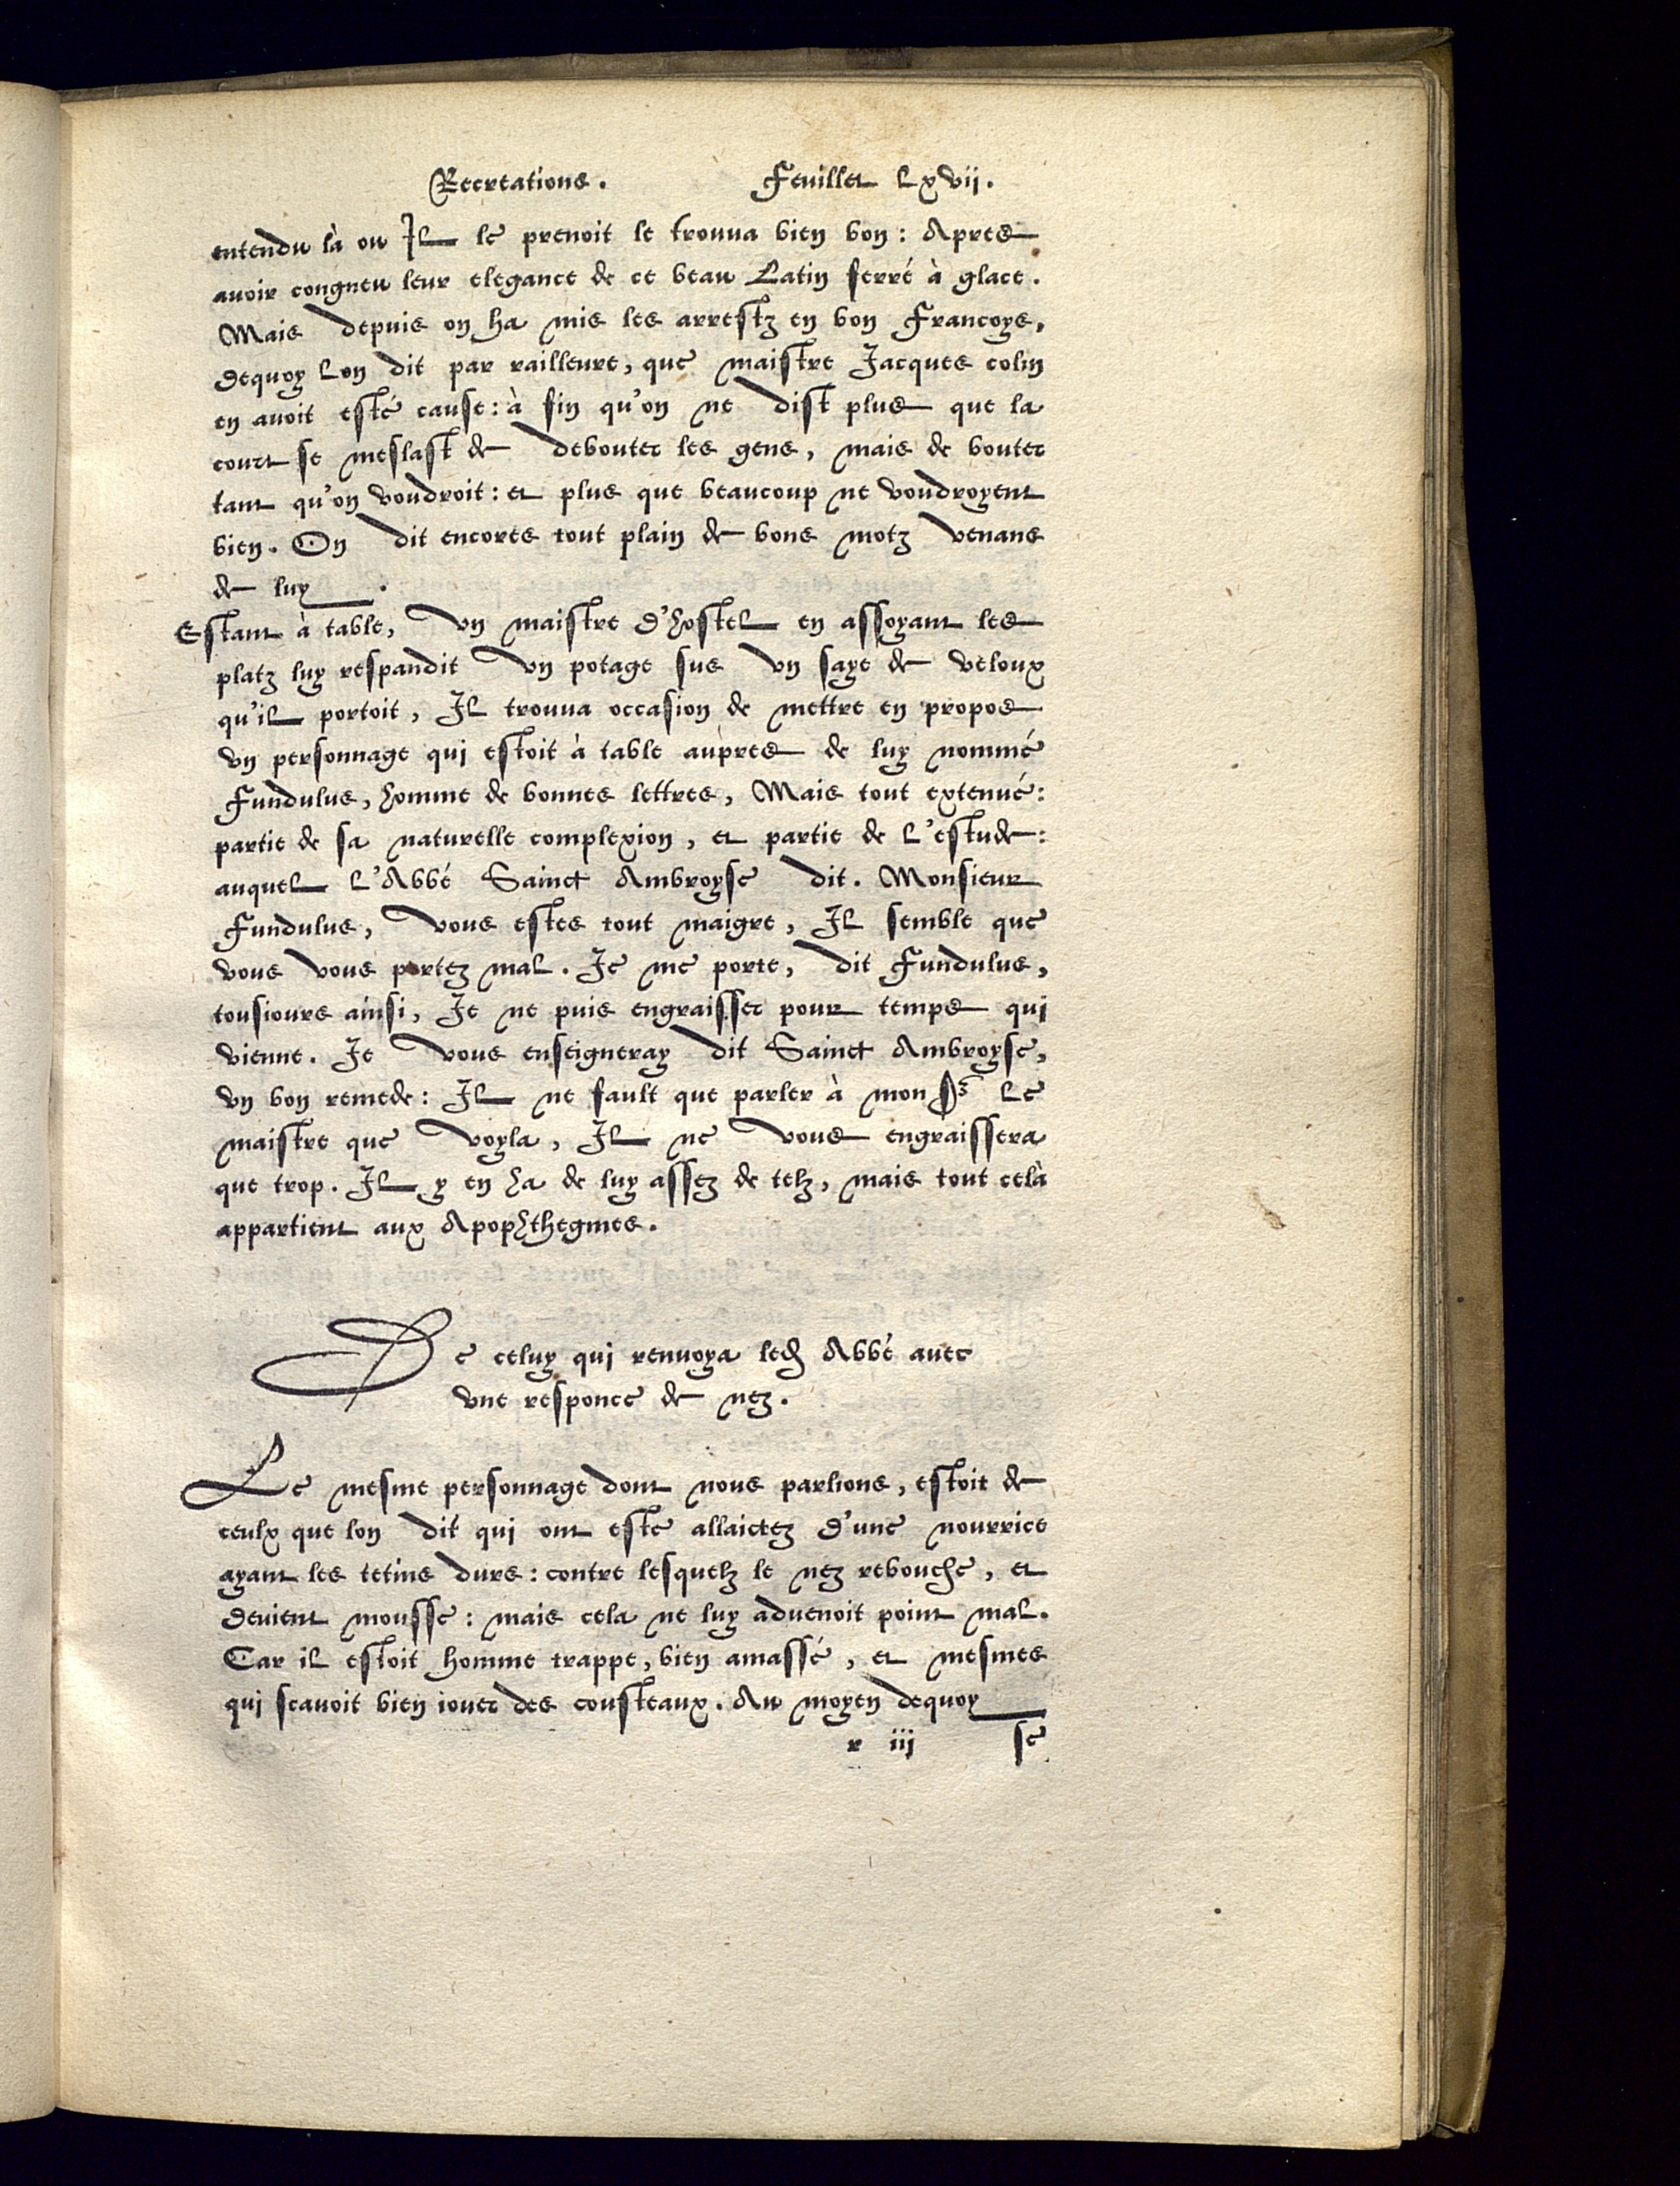 Recreations. Feuillet Lxvij.
entendu là ou Il le prenoit le trouua bien bon: Apres
auoir congneu leur elegance de ce beau Latin ferré à glace.
Mais depuis on ha mis les arrestz en bon Francoys,
dequoy Lon dit par railleure, que maistre Jacques colin
en auoit esté cause: à fin qu'on ne dist plus que la
court se meslast de debouter les gens, mais de bouter
tant qu'on voudroit: et plus que beaucoup ne voudroyent
bien. On dit encores tout plain de bons motz venans
de luy.
Estant à table, vn maistre d'hostel en assoyant les
platz luy respandit vn potage sus vn saye de veloux
qu'il portoit, Il trouua occasion de mettre en propos
vn personnage qui estoit à table aupres de luy nommé
Fundulus, homme de bonnes lettres, Mais tout extenué:
partie de sa naturelle complexion, et partie de l'estude:
auquel l'Abbé Sainct Ambroyse dit. Monsieur
Fundulus, vous estes tout maigre, Il semble que
vous vous portez mal. Je me porte, dit Fundulus,
tousiours ainsi, Je ne puis engraisser pour temps qui
vienne. Je vous enseigneray dit Sainct Ambroyse,
vn bon remede: Il ne fault que parler à mon Sr Le
maistre que voyla, Il ne vous engraissera
que trop. Il y en ha de luy assez de telz, mais tout celà
appartient aux Apophthegmes.
De celuy qui renuoya led Abbé auec
vne responce de nez.
Le mesme personnage dont nous parlions, estoit de
ceulx que lon dit qui ont este allaictez d'une nourrice
ayant les tetins durs: contre lesquelz le nez rebouche, et
deuient mousse: mais cela ne luy aduenoit point mal.
Car il estoit homme trappe, bien amassé, et mesmes
qui scauoit bien iouer des cousteaux. Au moyen dequoy
r iij se